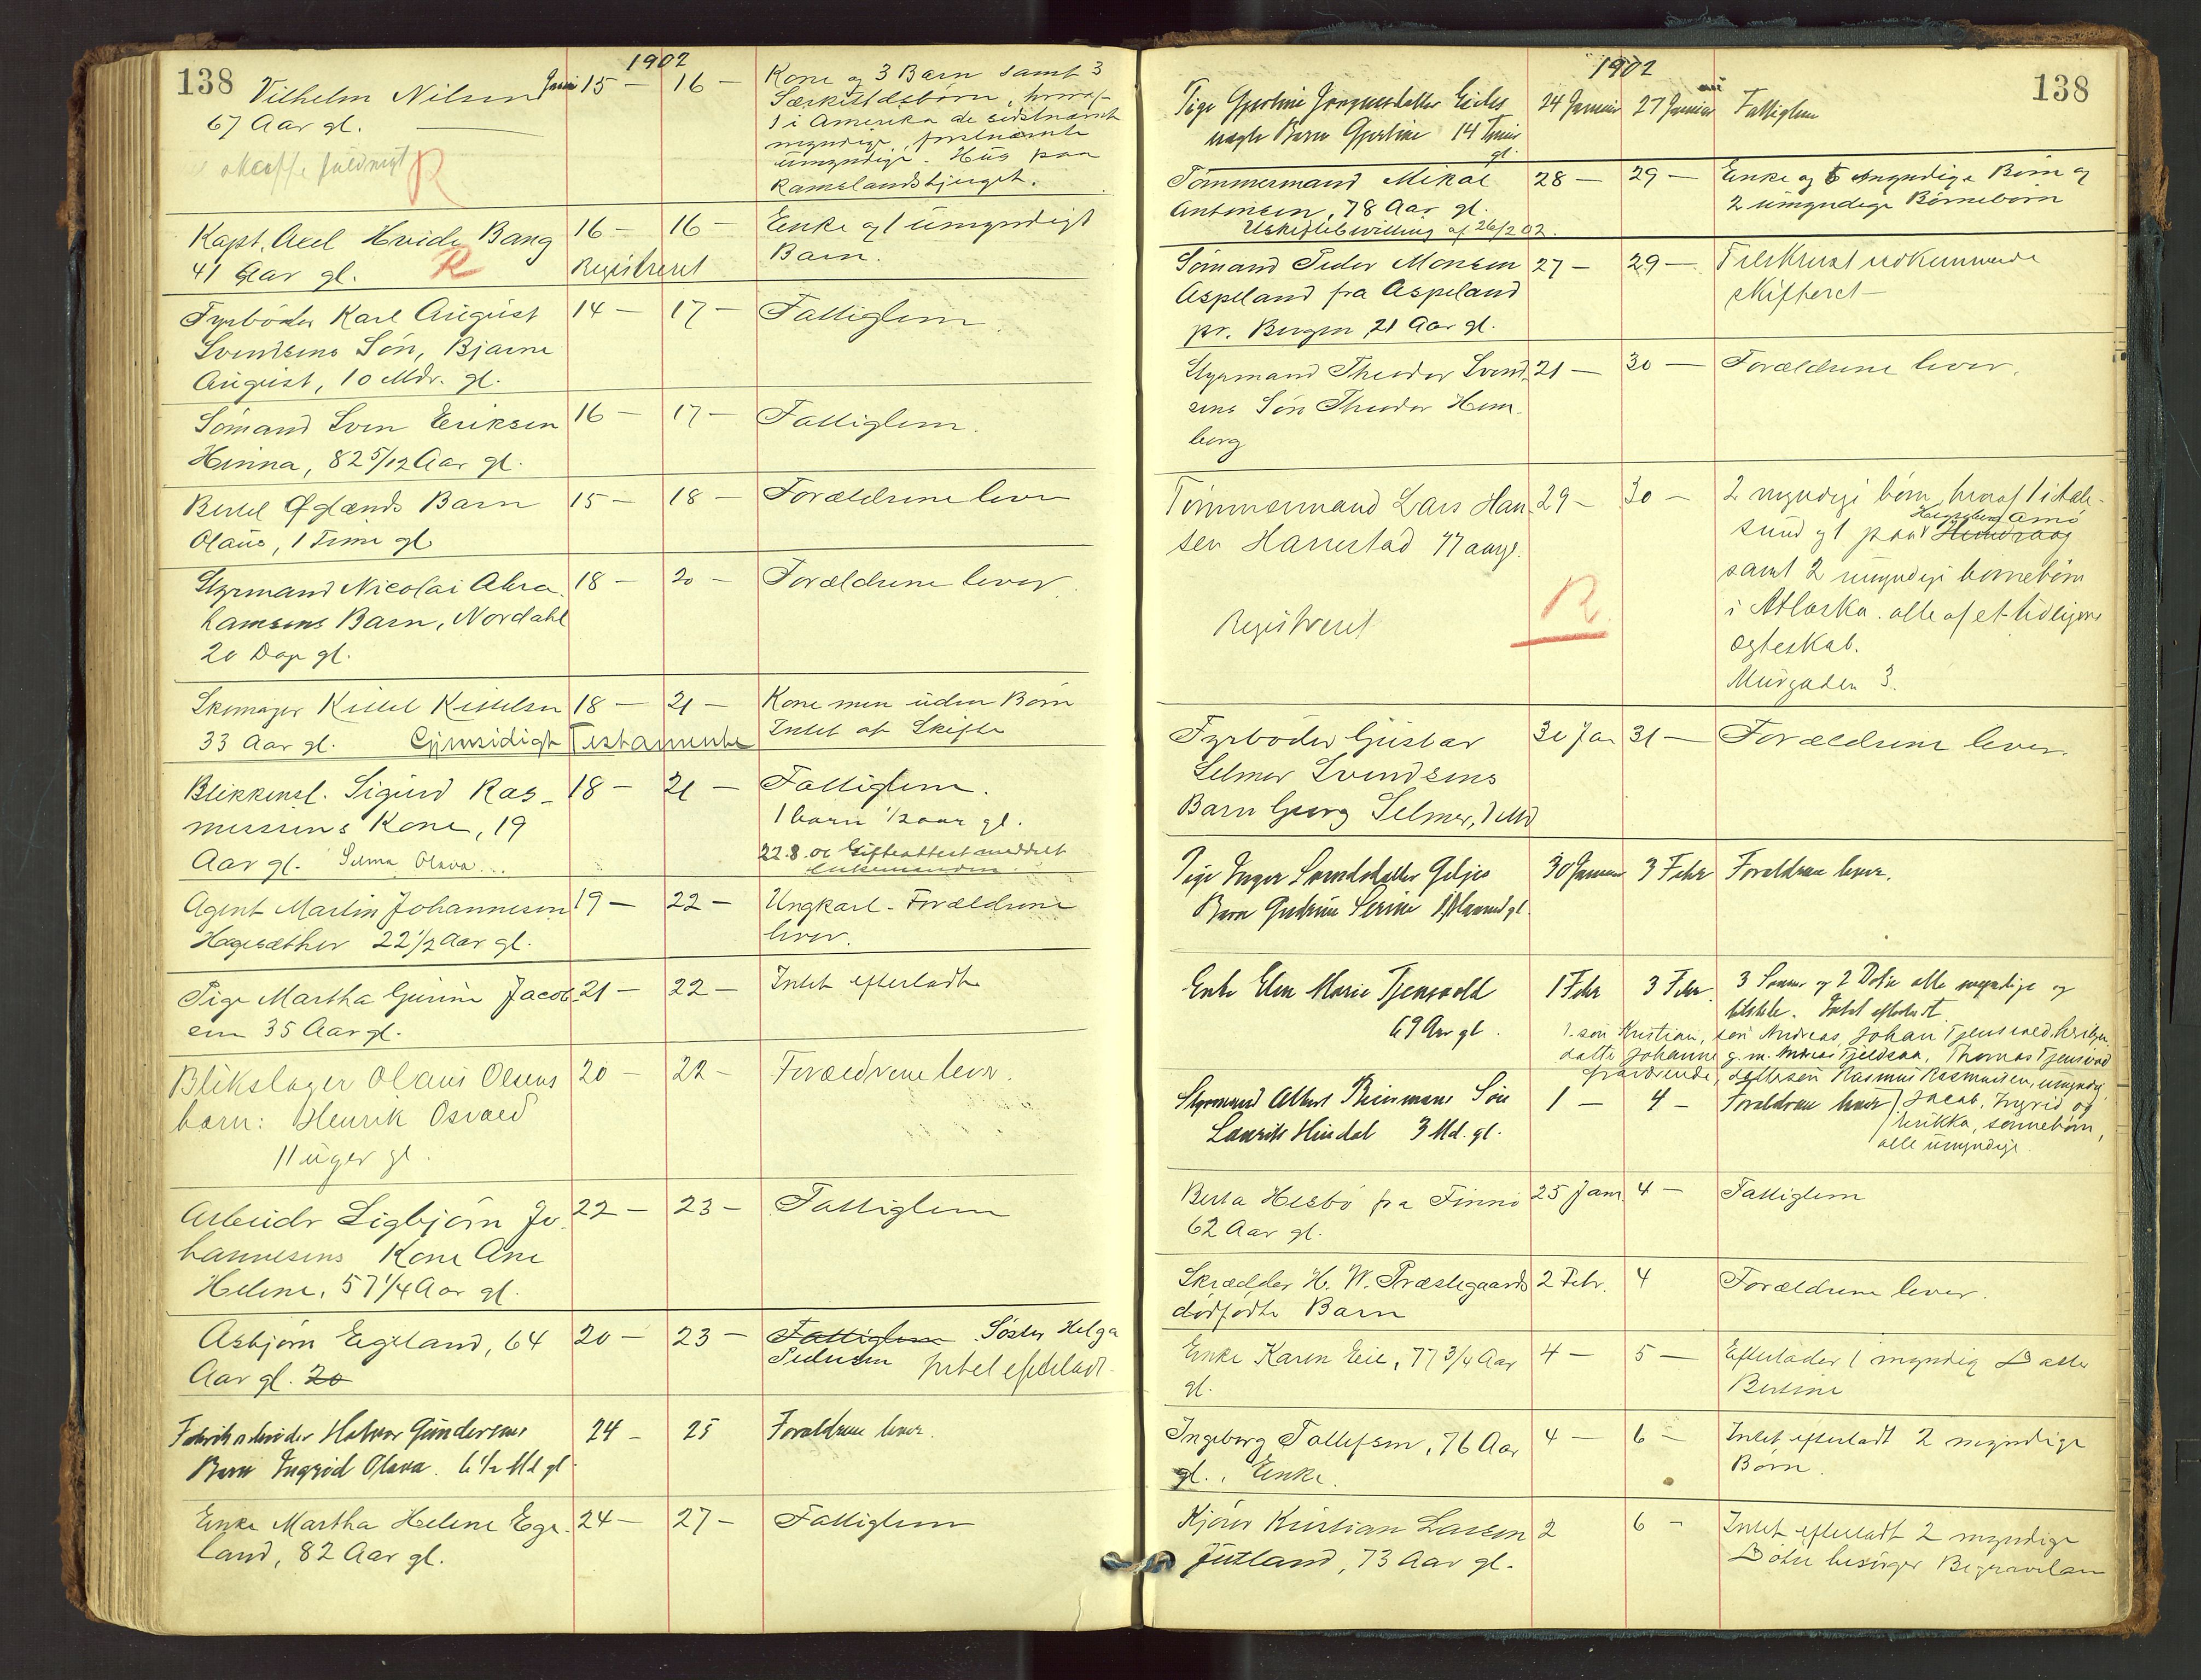 138
1902
Vilhelm Nilsen Janr 15 — 16 — Kone og 3 Børn samt 3
67 Aar gl. Særkuldsbørn, hvoraf
1 i Amerika de sidstnævnte
myndige, førstnævnte
umyndige. Hus paa
skaffe fuldmgt R
Ramslandsbjerget.
Kapt. Axel Hvide Bang 16 — 16 — Enke og 1 umyndigt
41 Aar gl. R Registreret Barn.
Fyrbøder Karl August 14 — 17 — Fattiglem
Svendsens Søn, Bjarne
August, 10 Mdr. gl.
Sømand Sven Eriksen 16 — 17 — Fattiglem.
Hinna, 82 5/12 Aar gl.
Bertel Øglænds Barn 15 — 18 — Forældrene lever
Olaus, 1 Time gl
Styrmand Nicolai Abra- 18 — 20 — Forældrene lever.
hamsens Barn, Nordahl
20 Dage gl.
Skomager Kittel Kittelsen 18 — 21 — Kone men uden Børn
33 Aar gl. Gjensidigt Testamente Intet at Skifte
Blikkensl. Sigurd Ras- 18 — 21 — Fattiglem.
mussens Kone, 19 1 barn 1/2 aar gl.
Aar gl. Selma Olava 22.8.02 Gifteattest meddelt
Enkemanden.
Agent Martin Johannesen 19 — 22 — Ungkarl. Forældrene
Hagesæther 22 1/2 Aar gl. lever.
Pige Martha Gurine Jacob- 21 — 22 — Intet efterladt
sen 35 Aar gl.
Blikslager Olaus Olsens 20 — 22 — Forældrene lever.
barn: Henrik Osvald
11 uger gl.
Arbeider Sigbjørn Jo- 22 — 23 — Fattiglem
hannesens Kone Ane
Helene, 57 1/4 Aar gl.
Asbjørn Egeland, 64 20 — 23 — Fattiglem Søster Helga
Aar gl. 20 Pedersen Intet efterladt.
Fabrikarbeider Halvor Gundersens 24 — 25 Forældrene lever.
Barn Ingrid Olava. 6 1/2 Md gl
Enke Martha Helene Ege- 24 — 27 — Fattiglem
land, 82 Aar gl.
1902
138
Pige Gjertine Jørgensdatter Eides 24 Januar 27 Januar Fattiglem
uægte Barn Gjertine 14 Timer
gl.
Tømmermand Mikal 28 — 29 — Enke og 6 myndige Børn og
Antonsen, 78 Aar gl. 2 umyndige Børnebørn
Uskiftebevilling af 26/2 02.
Sømand Peder Monsen 27 — 29 — Tilskrevet vedkommende
Aspeland fra Aspeland skifteret —
pr. Bergen 21 Aar gl.
Styrmand Theodor Svend- 21 — 30 — Forældrene lever.
sens Søn Theodor Hem-
berg
Tømmermand Lars Han- 29 — 30 — 2 myndige børn, hvoraf 1 i Aale-
sen Harrestad 77 aar gl. sund og 1 paa Amø
samt 2 umyndige børnebørn
Registreret R i Atlaska. alle af et tidligere
ægteskab.
Murgaden 3.
Fyrbøder Gustav 30 Jan 31 — Forældrene lever.
Selmer Svendsens
Barn Georg Selmer, 1 Md
Pige Inger Svendsdatter Giljes 30 Januar 3 Febr Forældrene lever.
Barn Gudrun Serine Maaned gl.
Enke Elen Marie Tjensvold 1 Febr 3 Febr. 3 Sønner og 2 Døtre alle myndige og
69 Aar gl. tilstede. Intet efterladt
1 søn Kristian, søn Andreas, Johan Tjensvold,
datter Johanne g. m. Andreas Tjeldsaa, Thomas Tjensvold
fraværende, dattersøn Rasmus Rasmussen, umyndig
Styrmand Albert Breimans Søn 1 — 4 — Forældrene lever / Jacob, Ingrid og
Laurits Hindal 3 Md. gl. sønnebørn,
alle umyndige.
Berta Hesbø fra Finnø 25 Janr 4 — Fattiglem
62 Aar gl.
Skrædder H. W. Præstegaards 2 Febr. 4 Forældrene lever.
dødfødte Barn
Enke Karen Eie, 77 3/4 Aar 4 — 5 — Efterlader 1 myndig Datter
gl. Bertine
Ingeborg Tollefsen, 76 Aar 4 — 6 — Intet efterladt 2 myndige
gl., Enke. Børn.
Kjører Kristian Lassen 2 6 — Intet efterladt 2 myndige
Jutland, 73 Aar gl. Døtre besørger Begravelsen